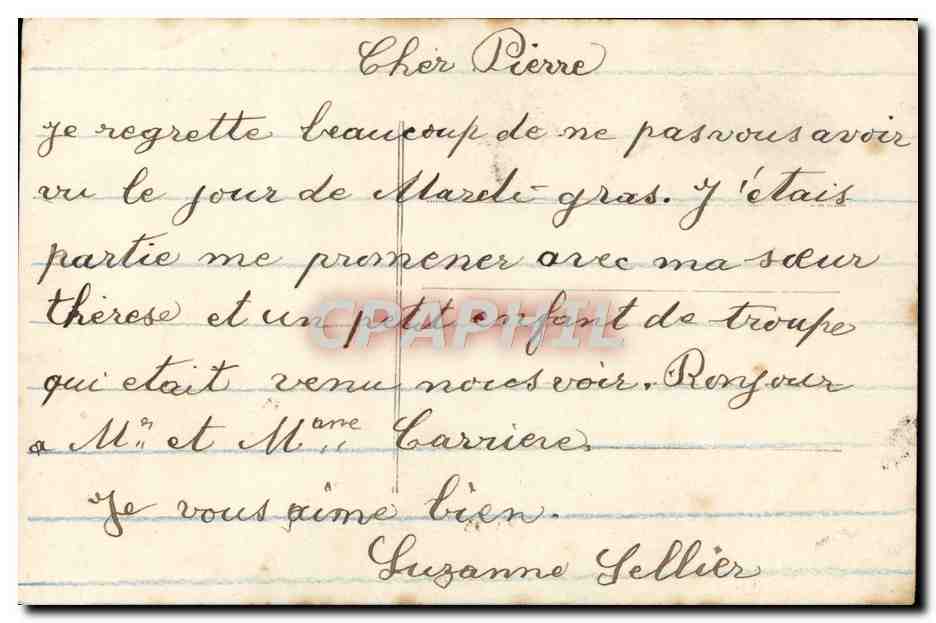 Cher Pierre
Je regrette beaucoup de ne pas vous avoir
vu le jour de Mardi-gras. J'étais
partie me promener avec ma sœur
thérèse et un petit enfant de troupe
CPAPHIL
qui etait venu nous voir. Bonjour
a Mr et Mame Carriere.
Je vous aime bien.
Suzanne Sellier